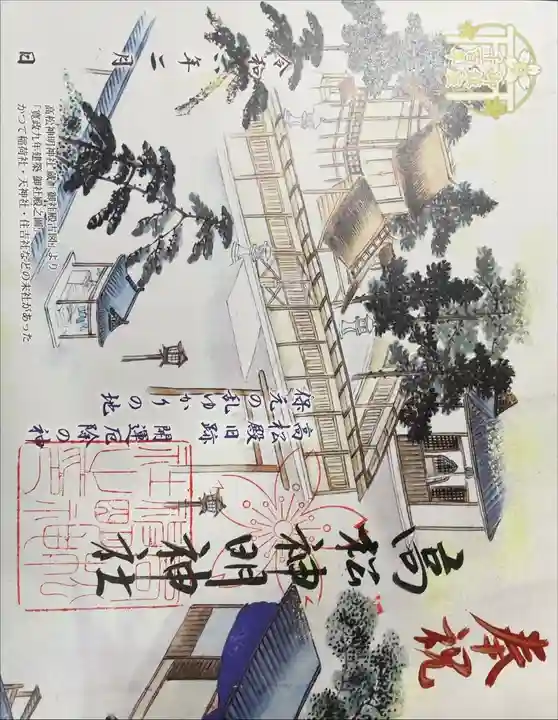 奉祝
高松神明神社
高松殿旧跡
保元の乱ゆかりの地
開運厄除の神
令和 年二月 日
高松神明神社 蔵『御社殿古図』より
「寛政九年建築 御社殿之圖」
かつて稲荷社・天神社・住吉社などの末社があった